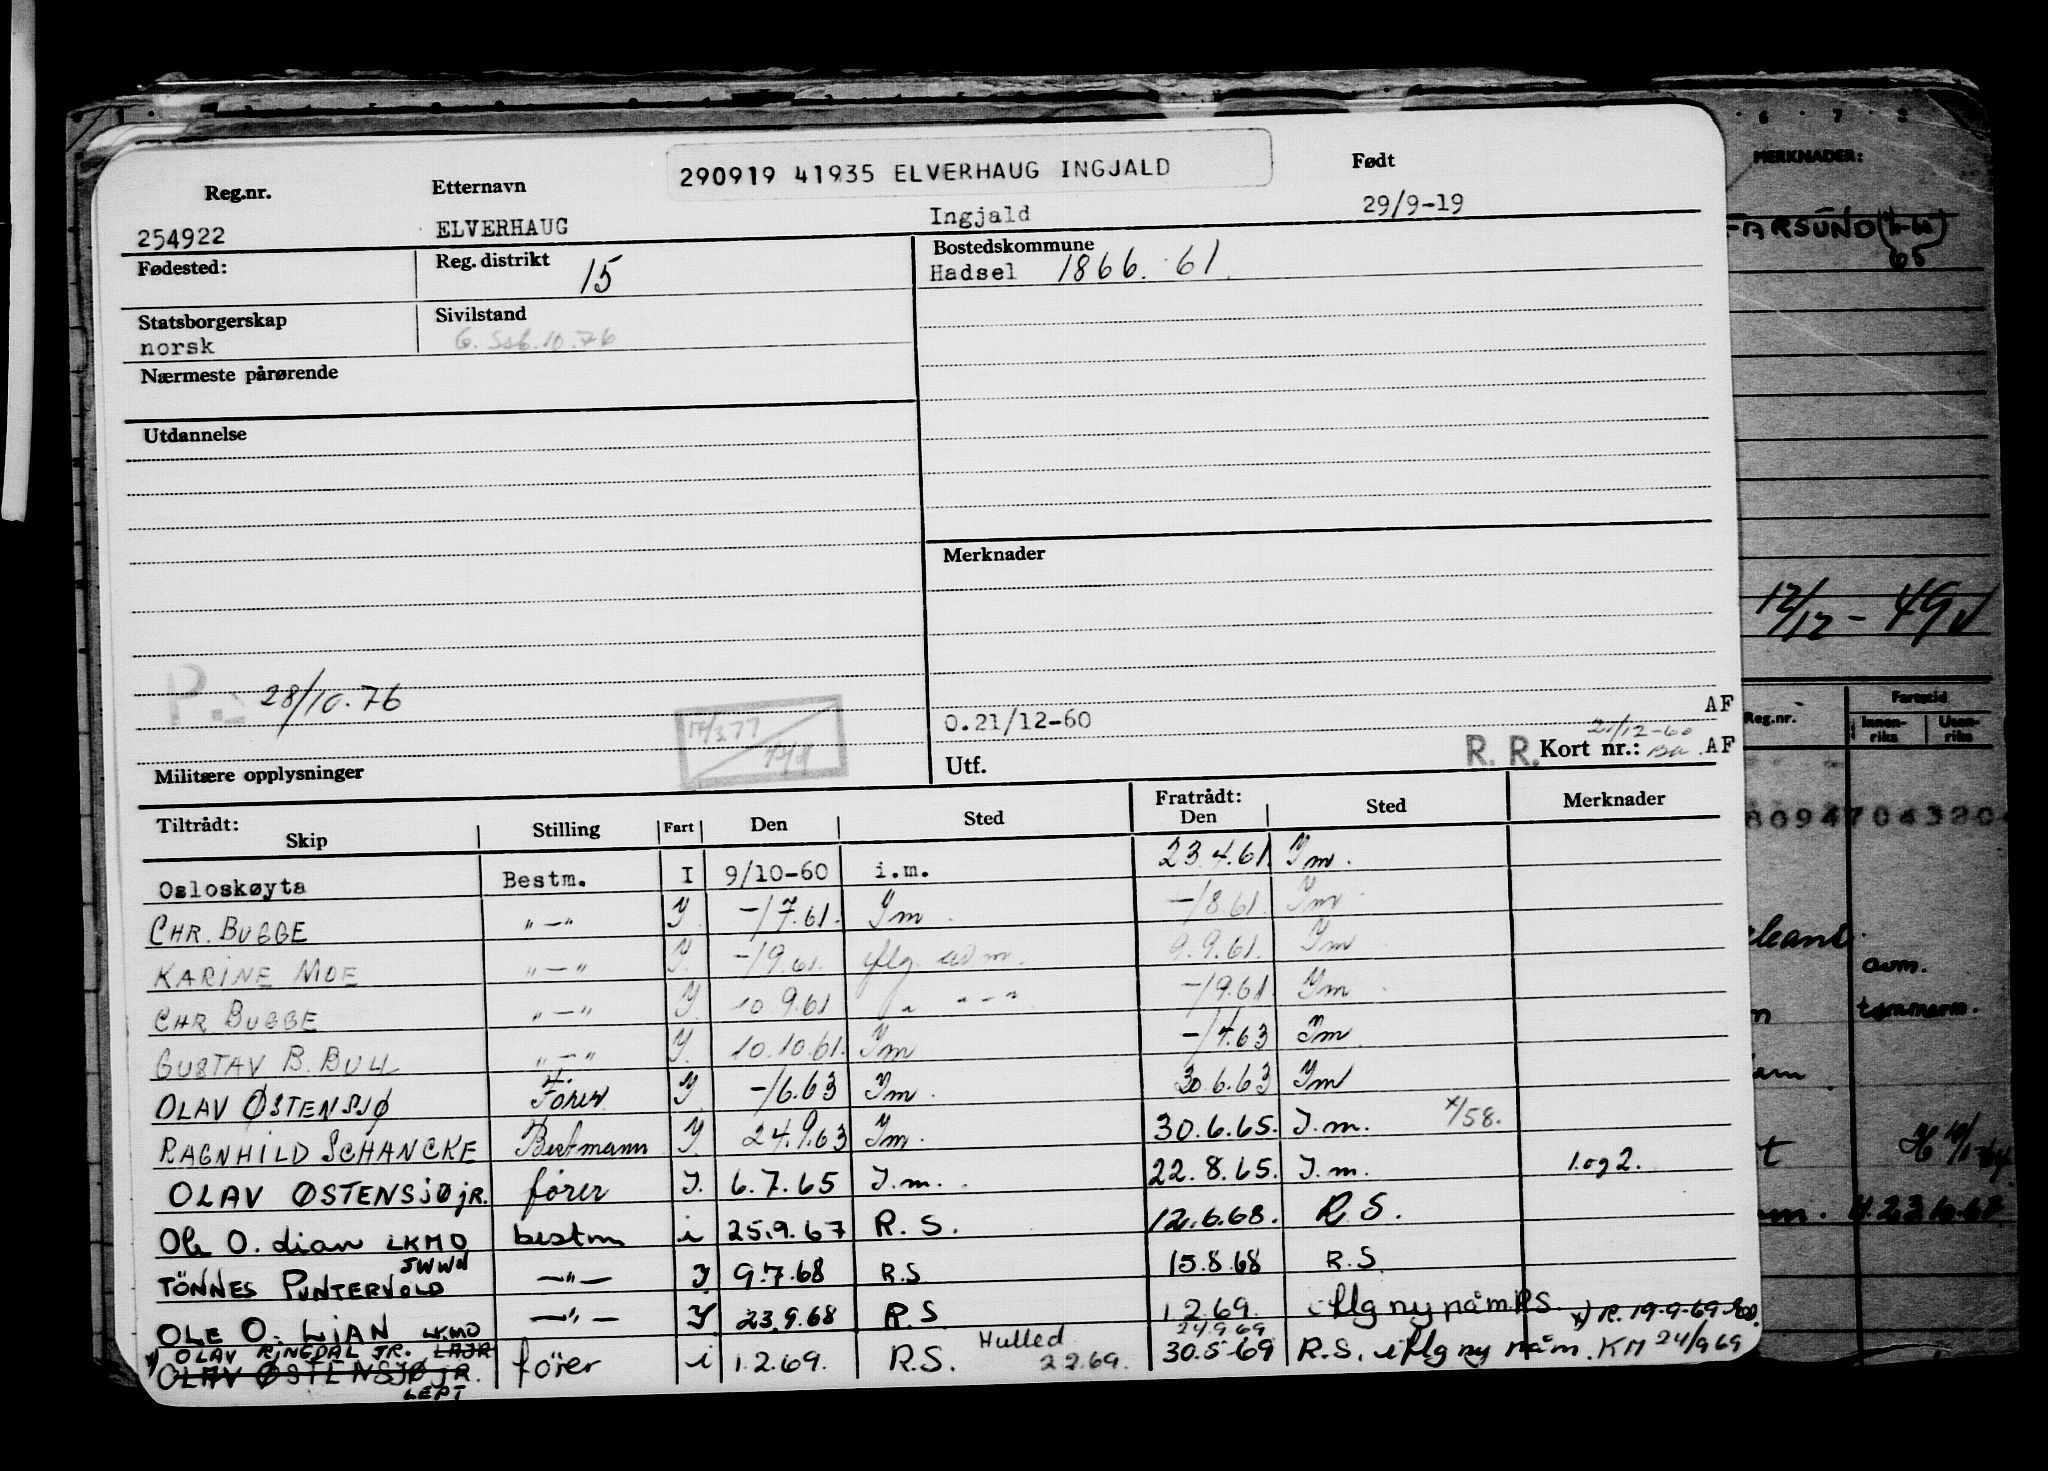 290919 41935 ELVERHAUG INGJALD
Reg.nr. Etternavn Født
254922 ELVERHAUG Ingjald 29/9-19
Fødested: Reg. distrikt 15 Bostedskommune
Hadsel 1866. 61.
Statsborgerskap Sivilstand
norsk G. Ssb. 10.76
Nærmeste pårørende
Utdannelse
Merknader
P.: 28/10.76
17/3.77
O.21/12-60 AF
21/12-60
R. R. Kort nr.: AF
Militære opplysninger Utf.
Tiltrådt: Skip Stilling Fart Den Sted Fratrådt: Den Sted Merknader
Osloskøyta Bestm. I 9/10-60 i.m. 23.4.61. Im.
CHR. BUGGE "-" I -/7.61. Im. -/8.61. Im.
KARINE MOE "-" I. -/9.61. iflg. adm. 9.9.61. Im
CHR BUGGE "-" I 10.9.61 " "-" -/9.61. Im.
GUSTAV B. BULL "-" I. 10.10.61. Im -/4.63 Im
OLAV ØSTENSJØ Fører I -/6.63 Im. 30.6.63 Im
RAGNHILD SCHANCKE Bestmann I 24.9.63 Im. 30.6.65. I.m. x/58.
OLAV ØSTENSJØ jR. fører I. 6.7.65 I.m. 22.8.65. I.m. 1.og 2.
Ole O. Lian LKMO bestm i 25.9.67 R.S. 12.6.68. R.S.
TÖNNES PUNTERVOLD JWWN -"- I 9.7.68 R.S 15.8.68 R.S
OLE O. LJAN LKMO -"- I 23.9.68 R.S 1.2.69. iflg ny påm R.S. x) R. 19-9-69
OLAV RINGDAL JR. LAJR 24.9.69
x) OLAV ØSTENSJØ jR. LEPT fører i 1.2.69. R.S. Hulled 2.2.69. 30.5-69 R.S. iflg ny påm. KM 24/9 69
6 7
MERKNADER:
FARSUND
65
12/12 - 49
Reg.nr. Fartstid
Innenriks Utenriks
809470432
avm.
tømmerm.